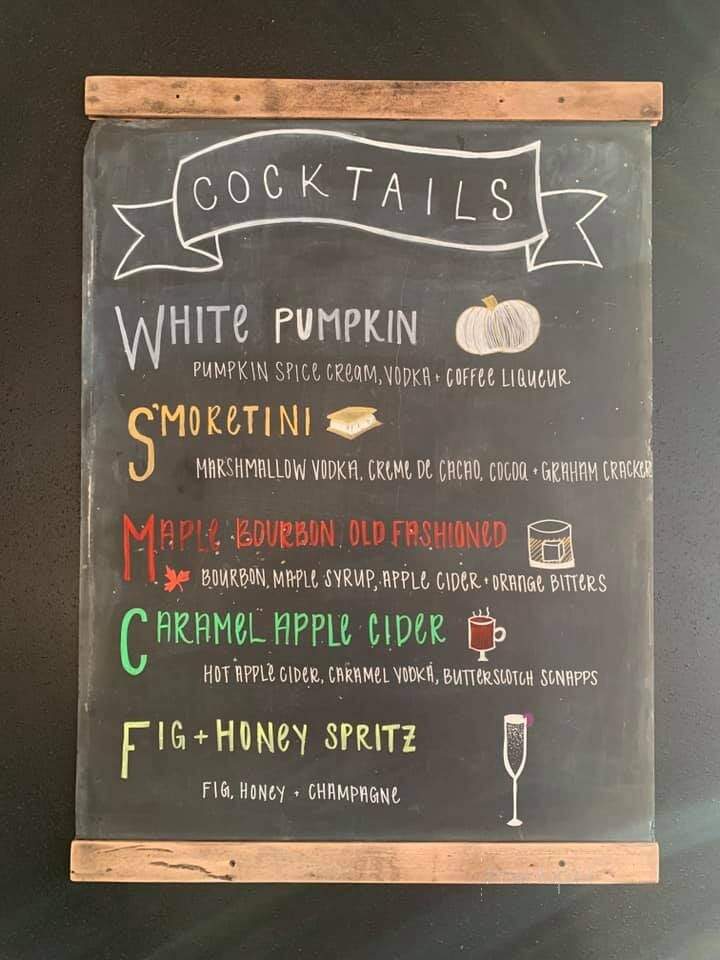 COCKTAILS
WHITE PUMPKIN
PUMPKIN SPICE CREAM, VODKA + COFFEE LIQUEUR
S'MORETINI
MARSHMALLOW VODKA, CREME DE CACAO, COCOA + GRAHAM CRACKER
MAPLE BOURBON OLD FASHIONED
BOURBON, MAPLE SYRUP, APPLE CIDER + ORANGE BITTERS
CARAMEL APPLE CIDER
HOT APPLE CIDER, CARAMEL VODKA, BUTTERSCOTCH SCNAPPS
FIG + HONEY SPRITZ
FIG, HONEY + CHAMPAGNE